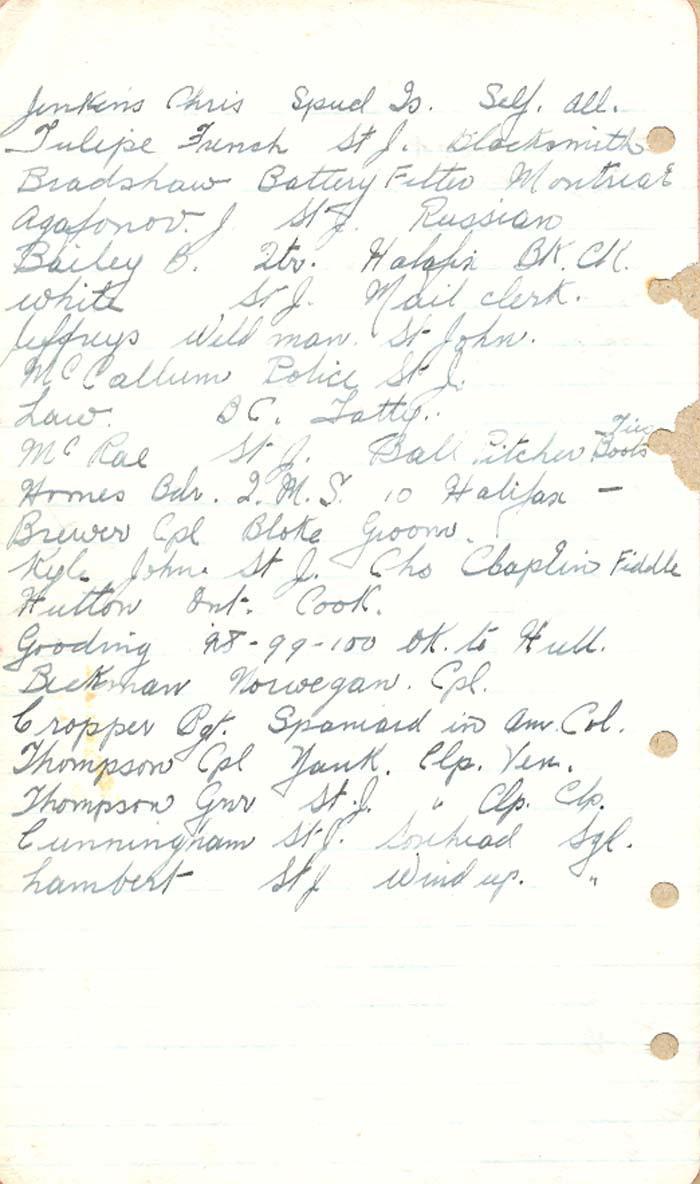 Jenkins Chris Spud Is. Self. all.
Tulipe French St J. Blacksmith
Bradshaw Battery Fitter Montreal
Agafonov. J St J. Russian
Bailey B. Halafix BK. CK.
White St J. Mail clerk.
Jeffreys Wild man. St John.
McCallum Police St J.
Law. BC. Fatty.
McRae St J. Ball Pitcher Boots
Homes Bdr. Q.M.S. 10 Halifax —
Brewer Cpl Bloke Groom.
Kyle John. St J. Chs Chaplin Fiddle
Hutton Ont. Cook.
Gooding 98-99-100 OK. to Hull.
Beckman Norwegan. Cpl.
Cropper Sgt. Spaniard in Am. Col.
Thompson Cpl Yank. Clp. Ven.
Thompson Gnr St. J. " Clp. Clp.
Cunningham St J. Sorehead Sgl.
Lambert St J Wind up. "